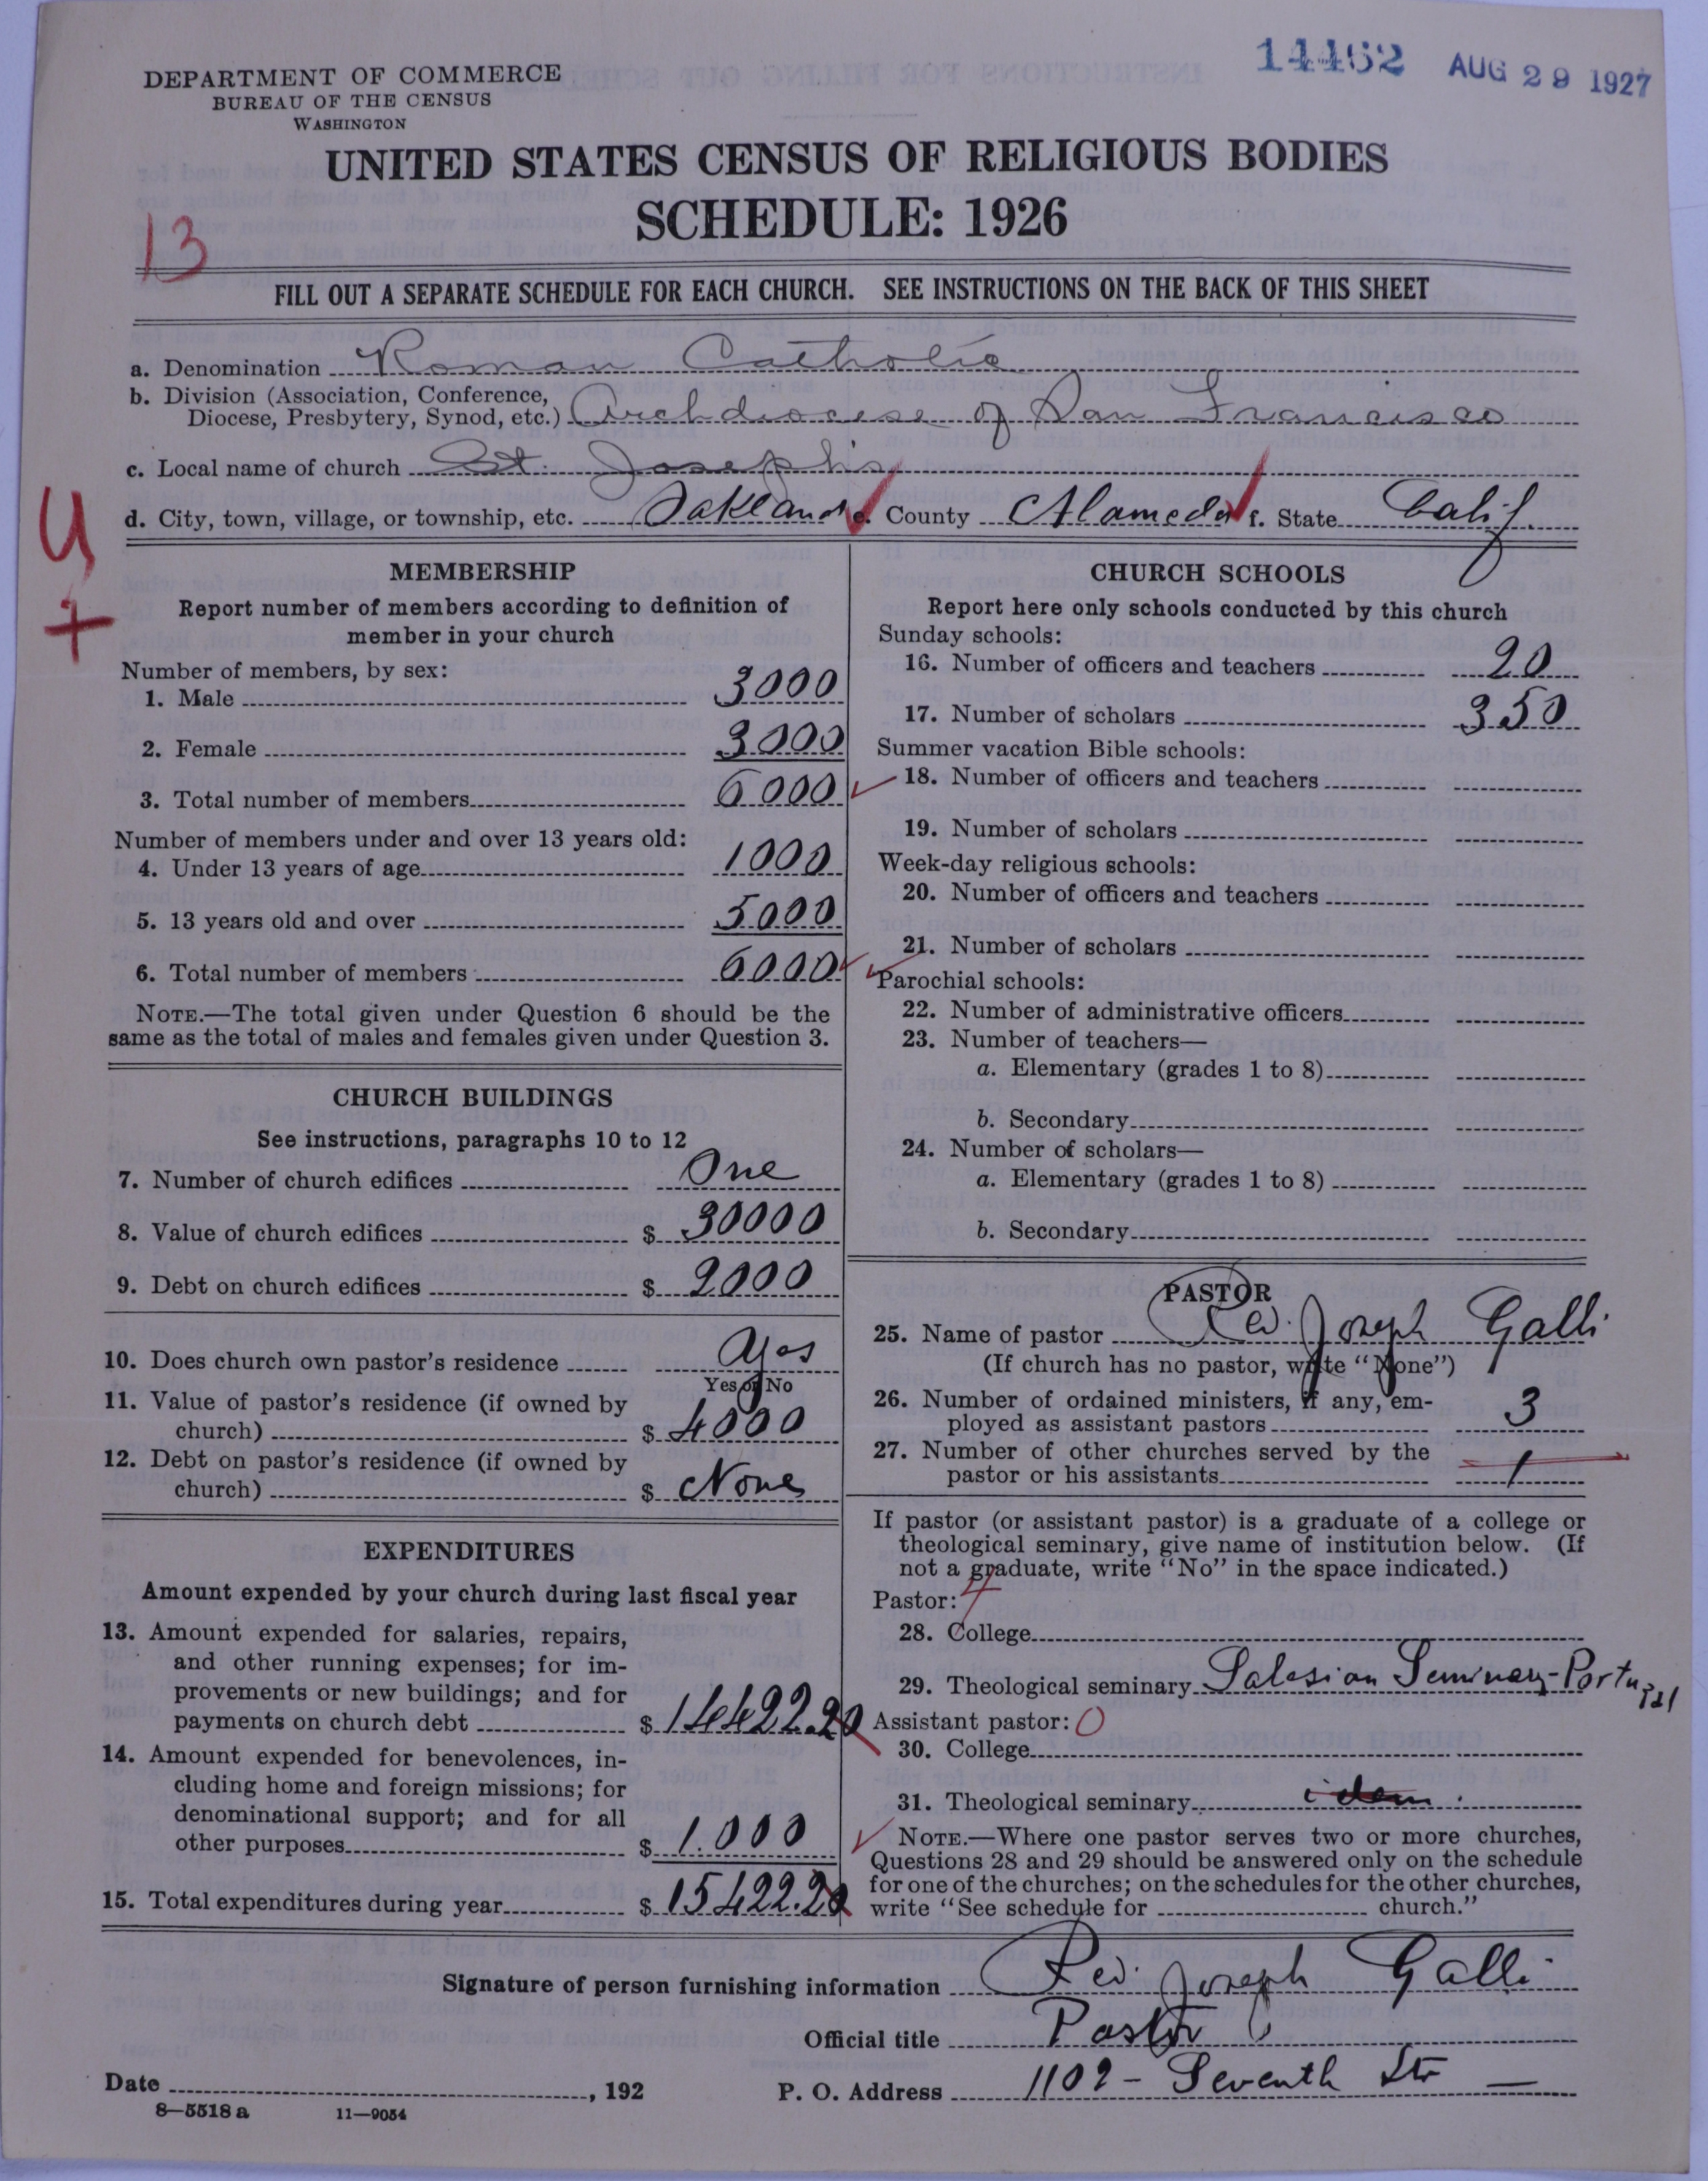 14462 AUG 29 1927
DEPARTMENT OF COMMERCE
BUREAU OF THE CENSUS
WASHINGTON
UNITED STATES CENSUS OF RELIGIOUS BODIES
SCHEDULE: 1926
13
FILL OUT A SEPARATE SCHEDULE FOR EACH CHURCH. SEE INSTRUCTIONS ON THE BACK OF THIS SHEET
a. Denomination Roman Catholic
b. Division (Association, Conference,
Diocese, Presbytery, Synod, etc.) Archdiocese of San Francisco
c. Local name of church St. Joseph's
d. City, town, village, or township, etc. Oakland e. County Alameda f. State Calif.
U
+
MEMBERSHIP
Report number of members according to definition of
member in your church
Number of members, by sex:
1. Male 3000
2. Female 3000
3. Total number of members 6000
Number of members under and over 13 years old:
4. Under 13 years of age 1000
5. 13 years old and over 5000
6. Total number of members 6000
NOTE.—The total given under Question 6 should be the
same as the total of males and females given under Question 3.
CHURCH BUILDINGS
See instructions, paragraphs 10 to 12
7. Number of church edifices One
8. Value of church edifices $ 30000
9. Debt on church edifices $ 2000
10. Does church own pastor's residence Yes
Yes or No
11. Value of pastor's residence (if owned by
church) $ 4000
12. Debt on pastor's residence (if owned by
church) $ None
EXPENDITURES
Amount expended by your church during last fiscal year
13. Amount expended for salaries, repairs,
and other running expenses; for im-
provements or new buildings; and for
payments on church debt $ 14422.20
14. Amount expended for benevolences, in-
cluding home and foreign missions; for
denominational support; and for all
other purposes $ 1.000
15. Total expenditures during year $ 15422.20
CHURCH SCHOOLS
Report here only schools conducted by this church
Sunday schools:
16. Number of officers and teachers 20
17. Number of scholars 350
Summer vacation Bible schools:
18. Number of officers and teachers
19. Number of scholars
Week-day religious schools:
20. Number of officers and teachers
21. Number of scholars
Parochial schools:
22. Number of administrative officers
23. Number of teachers—
a. Elementary (grades 1 to 8)
b. Secondary
24. Number of scholars—
a. Elementary (grades 1 to 8)
b. Secondary
PASTOR
25. Name of pastor Rev. Joseph Galli
(If church has no pastor, write "None")
26. Number of ordained ministers, if any, em-
ployed as assistant pastors 3
27. Number of other churches served by the
pastor or his assistants 1
If pastor (or assistant pastor) is a graduate of a college or
theological seminary, give name of institution below. (If
not a graduate, write "No" in the space indicated.)
Pastor:
28. College
29. Theological seminary Salesian Seminary-Portugal
Assistant pastor: 0
30. College
31. Theological seminary idem.
NOTE.—Where one pastor serves two or more churches,
Questions 28 and 29 should be answered only on the schedule
for one of the churches; on the schedules for the other churches,
write "See schedule for church."
Signature of person furnishing information Rev. Joseph Galli
Official title Pastor
Date , 192 P. O. Address 1102 - Seventh Str —
8—5518 a 11—9054